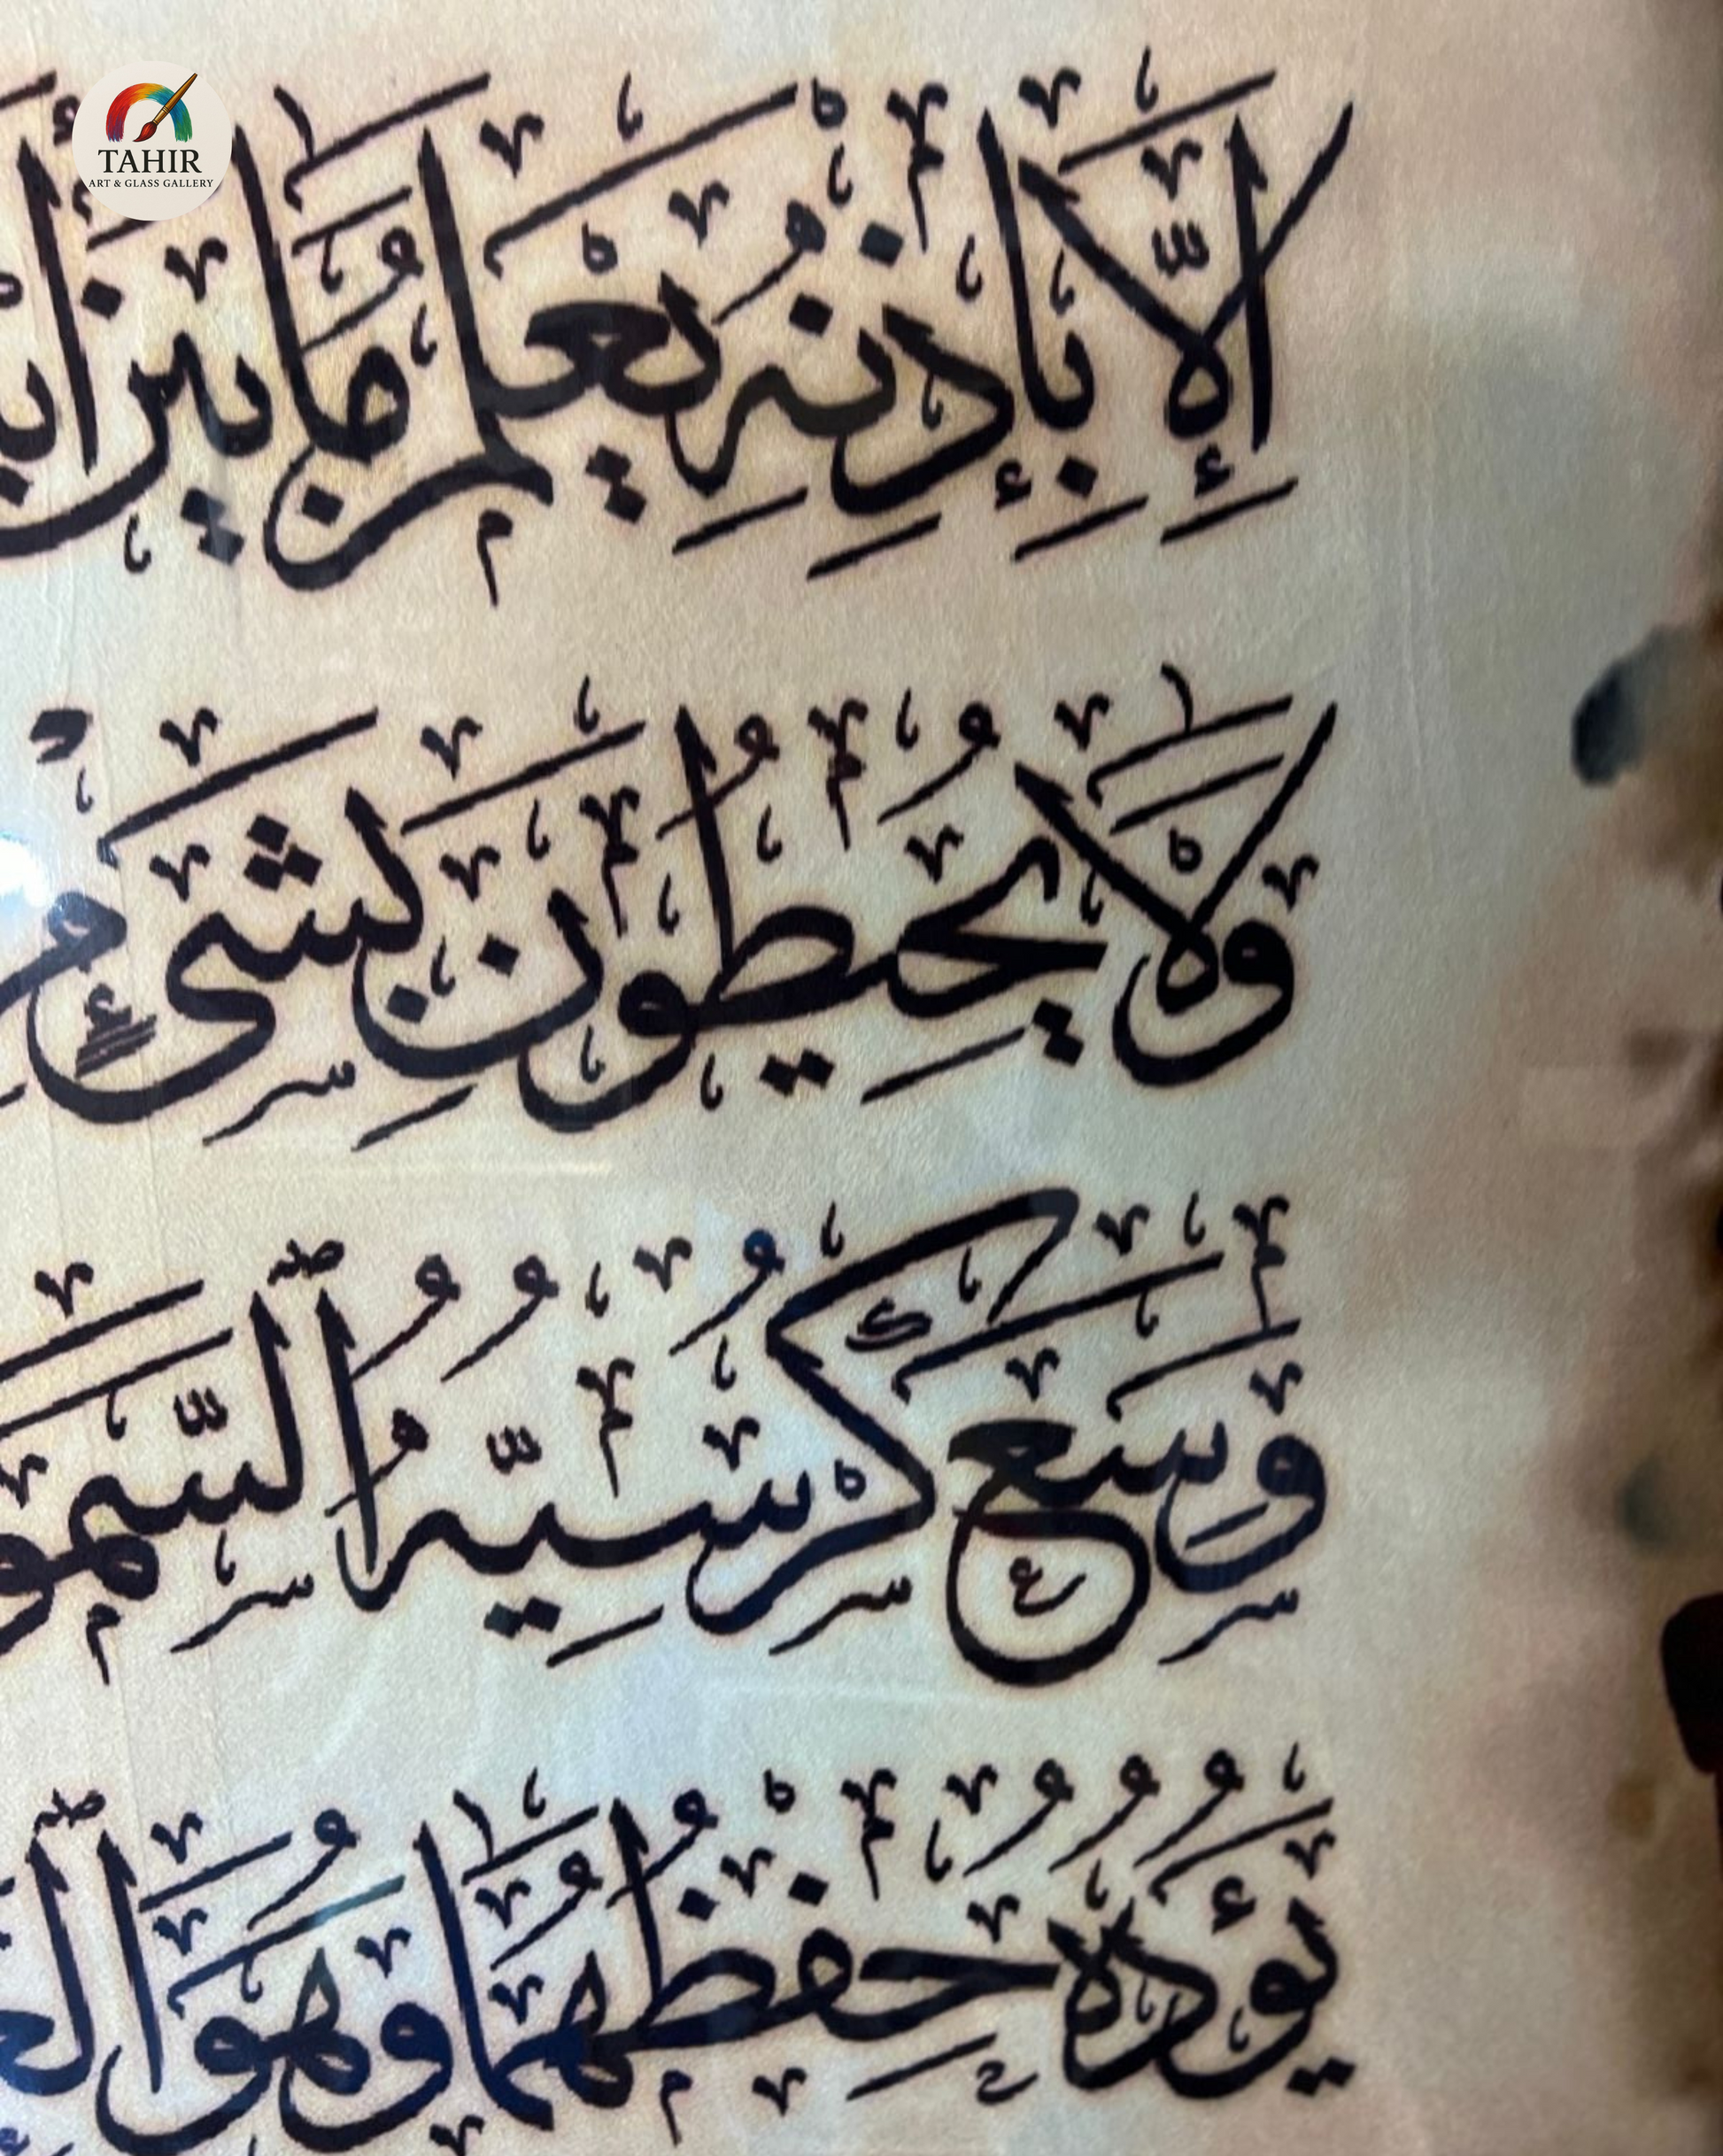 TAHIR
ART & GLASS GALLERY
إِلَّا بِإِذْنِهِ يَعْلَمُ مَا بَيْنَ
وَلَا يُحِيطُونَ بِشَىْءٍ
وَسِعَ كُرْسِيُّهُ ٱلسَّمٰو
يَؤُدُهُ حِفْظُهُمَا وَهُوَ